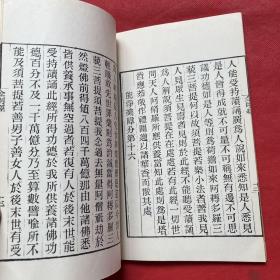 人能受持讀誦廣爲人說如來悉知是人悉見
是人皆得成就不可量不可稱無有邊不可思
議功德如是人等則爲荷擔如來阿耨多羅三
藐三菩提何以故須菩提若樂小法者著我見
人見眾生見壽者見則於此經不能聽受讀誦
爲人解說須菩提在在處處若有此經一切世
間天人阿修羅所應供養當知此處則爲是塔
皆應恭敬作禮圍繞以諸華香而散其處
能淨業障分第十六
輕賤故先世罪業則爲消滅當得阿耨多羅三
藐三菩提須菩提我念過去無量阿僧祇劫於
然燈佛前得值八百四千萬億那由他諸佛悉
皆供養承事無空過者若復有人於後末世能
受持讀誦此經所得功德於我所供養諸佛功
德百分不及一千萬億分乃至算數譬喻所不
能及須菩提若善男子善女人於後末世有受
金剛經
七